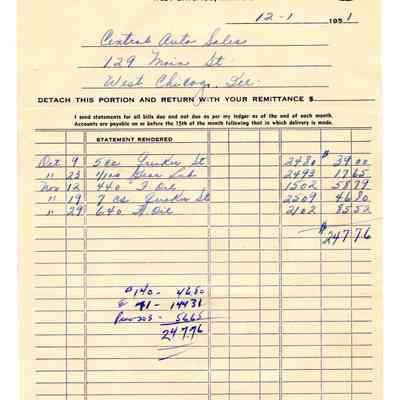 12-1 1951
Central Auto Sales
129 Main St.
West Chicago, Ill.
DETACH THIS PORTION AND RETURN WITH YOUR REMITTANCE $
I send statements for all bills due and not due as per my ledger as of the end of each month.
Accounts are payable on or before the 15th of the month following that in which delivery is made.
STATEMENT RENDERED
Oct 9 5 cs Quaker St 2480 $ 39.00
" 23 Gear Lub 2493 17.65
Nov 12 440 F Oil 1502 58.79
" 19 7 cs Quaker St 2509 46.80
" 29 640 Oil 2102 85.52
$ 247.76
#140 - 46.80
41 - 144.31
56.65
247.76